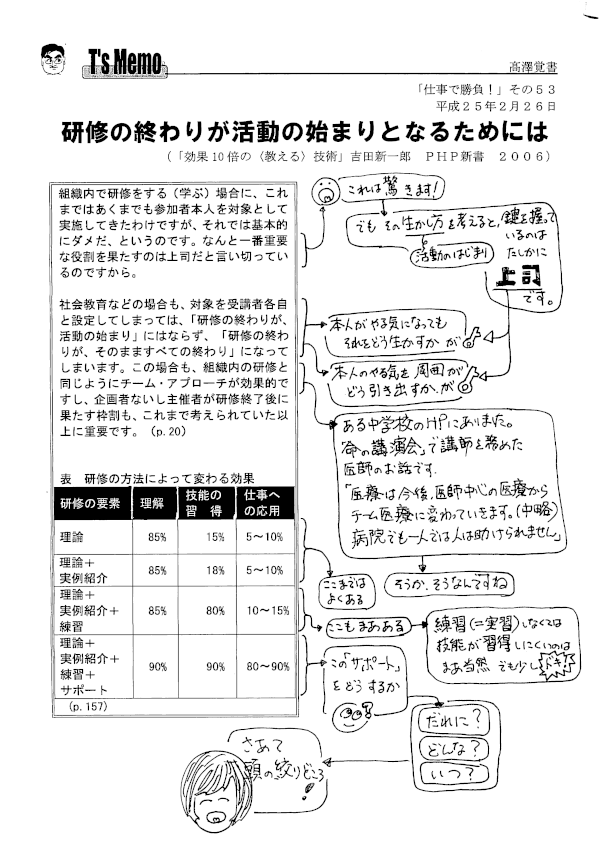 T's Memo
高澤覚書
「仕事で勝負！」その５３
平成２５年２月２６日
研修の終わりが活動の始まりとなるためには
（「効果10倍の〈教える〉技術」吉田新一郎　ＰＨＰ新書　２００６）
組織内で研修をする（学ぶ）場合に、これ
まではあくまでも参加者本人を対象として
実施してきたわけですが、それでは基本的
にダメだ、というのです。なんと一番重要
な役割を果たすのは上司だと言い切ってい
るのですから。
社会教育などの場合も、対象を受講者各自
と設定してしまっては、「研修の終わりが、
活動の始まり」にはならず、「研修の終わ
りが、そのまますべての終わり」になって
しまいます。この場合も、組織内の研修と
同じようにチーム・アプローチが効果的で
すし、企画者ないし主催者が研修終了後に
果たす枠割も、これまで考えられていた以
上に重要です。（p.20）
表　研修の方法によって変わる効果
研修の要素　理解　技能の習得　仕事への応用
理論　85%　15%　5～10%
理論＋
実例紹介　85%　18%　5～10%
理論＋
実例紹介＋
練習　85%　80%　10～15%
理論＋
実例紹介＋
練習＋
サポート　90%　90%　80～90%
（p.157）
これは驚きます！
でも その生かし方を考えると、鍵を握って
いるのは
たしかに
活動のはじまり
上司
です。
本人がやる気になっても
それをどう生かすか が
本人のやる気を 周囲が
どう引き出すか、が
ある中学校のHPにありました。
「命の講演会」で講師を務めた
医師のお話です.
「医療は今後、医師中心の医療から
チーム医療に変わっていきます。（中略）
病院でも一人では人は助けられません」
そうか、そうなんですね
ここまでは
よくある
ここもまあある
練習（＝実習）しなくては
技能が習得しにくいのは
まあ当然 でも少しドキ！
この「サポート」
をどうするか
だれに？
どんな？
いつ？
さあて
頭の絞りどころ
！